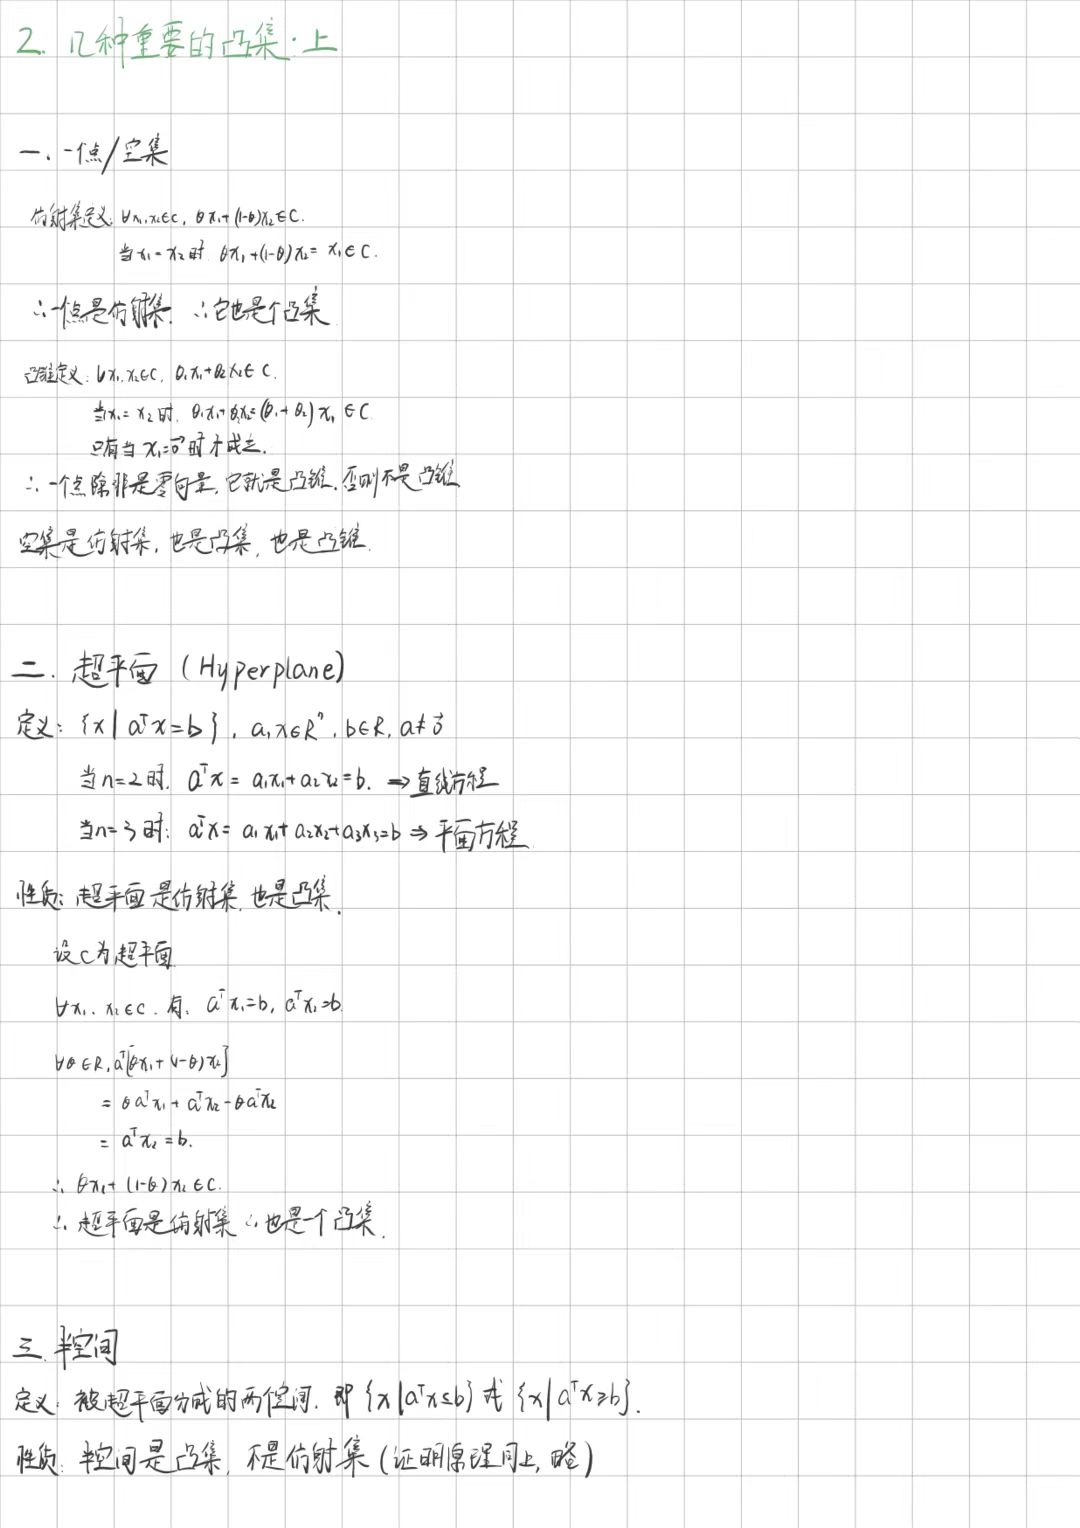 2. 几种重要的凸集·上
一. 一个点/空集
仿射集定义: ∀x₁,x₂∈C, θx₁+(1-θ)x₂∈C.
当x₁=x₂时 θx₁+(1-θ)x₂= x₁∈C.
∴一个点是仿射集. ∴它也是个凸集
凸锥定义: ∀x₁,x₂∈C, θ₁x₁+θ₂x₂∈C.
当x₁=x₂时. θ₁x₁+θ₂x₂=(θ₁+θ₂)x₁∈C
只有当 x₁=0⃗ 时才成立.
∴一个点除非是零向量, 它就是凸锥. 否则不是凸锥
空集是仿射集, 也是凸集, 也是凸锥.
二. 超平面 (Hyperplane)
定义: {x|aᵀx=b}, a,x∈Rⁿ, b∈R, a≠0⃗
当n=2时. aᵀx = a₁x₁+a₂x₂=b. ⇒直线方程
当n=3时: aᵀx= a₁x₁+a₂x₂+a₃x₃=b ⇒ 平面方程
性质: 超平面是仿射集, 也是凸集.
设C为超平面
∀x₁, x₂∈C. 有. aᵀx₁=b, aᵀx₂=b
∀θ∈R, aᵀ[θx₁+(1-θ)x₂]
= θaᵀx₁+aᵀx₂-θaᵀx₂
= aᵀx₂=b.
∴ θx₁+(1-θ)x₂∈C.
∴ 超平面是仿射集 ∴也是一个凸集.
三. 半空间
定义: 被超平面分成的两个空间. 即{x|aᵀx≤b}或{x|aᵀx≥b}.
性质: 半空间是凸集, 不是仿射集(证明原理同上, 略)